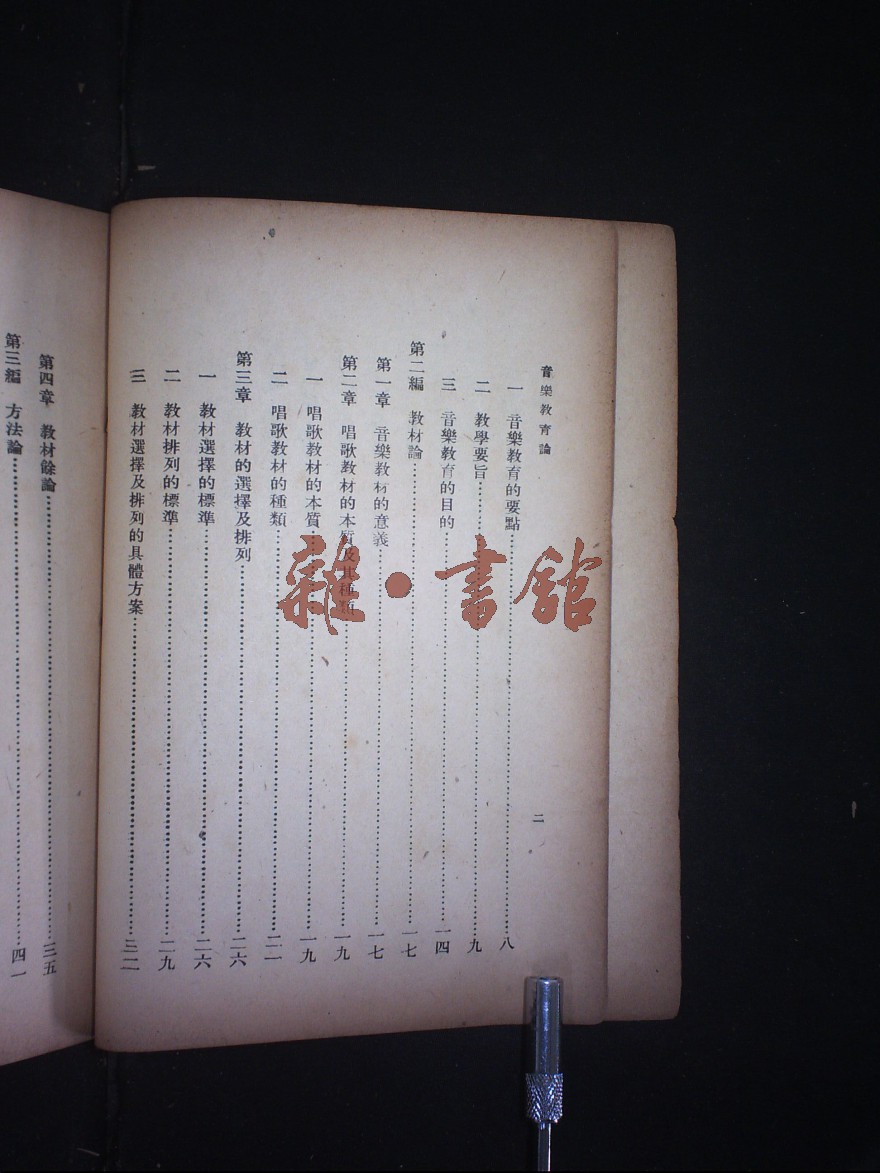 音樂教育論
一　音樂教育的要點……八
二　教學要旨……九
三　音樂教育的目的……一四
第二編　教材論……一七
第一章　音樂教材的意義……一七
第二章　唱歌教材的本質及其種類……一九
一　唱歌教材的本質……一九
二　唱歌教材的種類……二一
第三章　教材的選擇及排列……二六
一　教材選擇的標準……二六
二　教材排列的標準……二九
三　教材選擇及排列的具體方案……三二
二
第四章　教材餘論……三五
第三編　方法論……四一
雜·書館